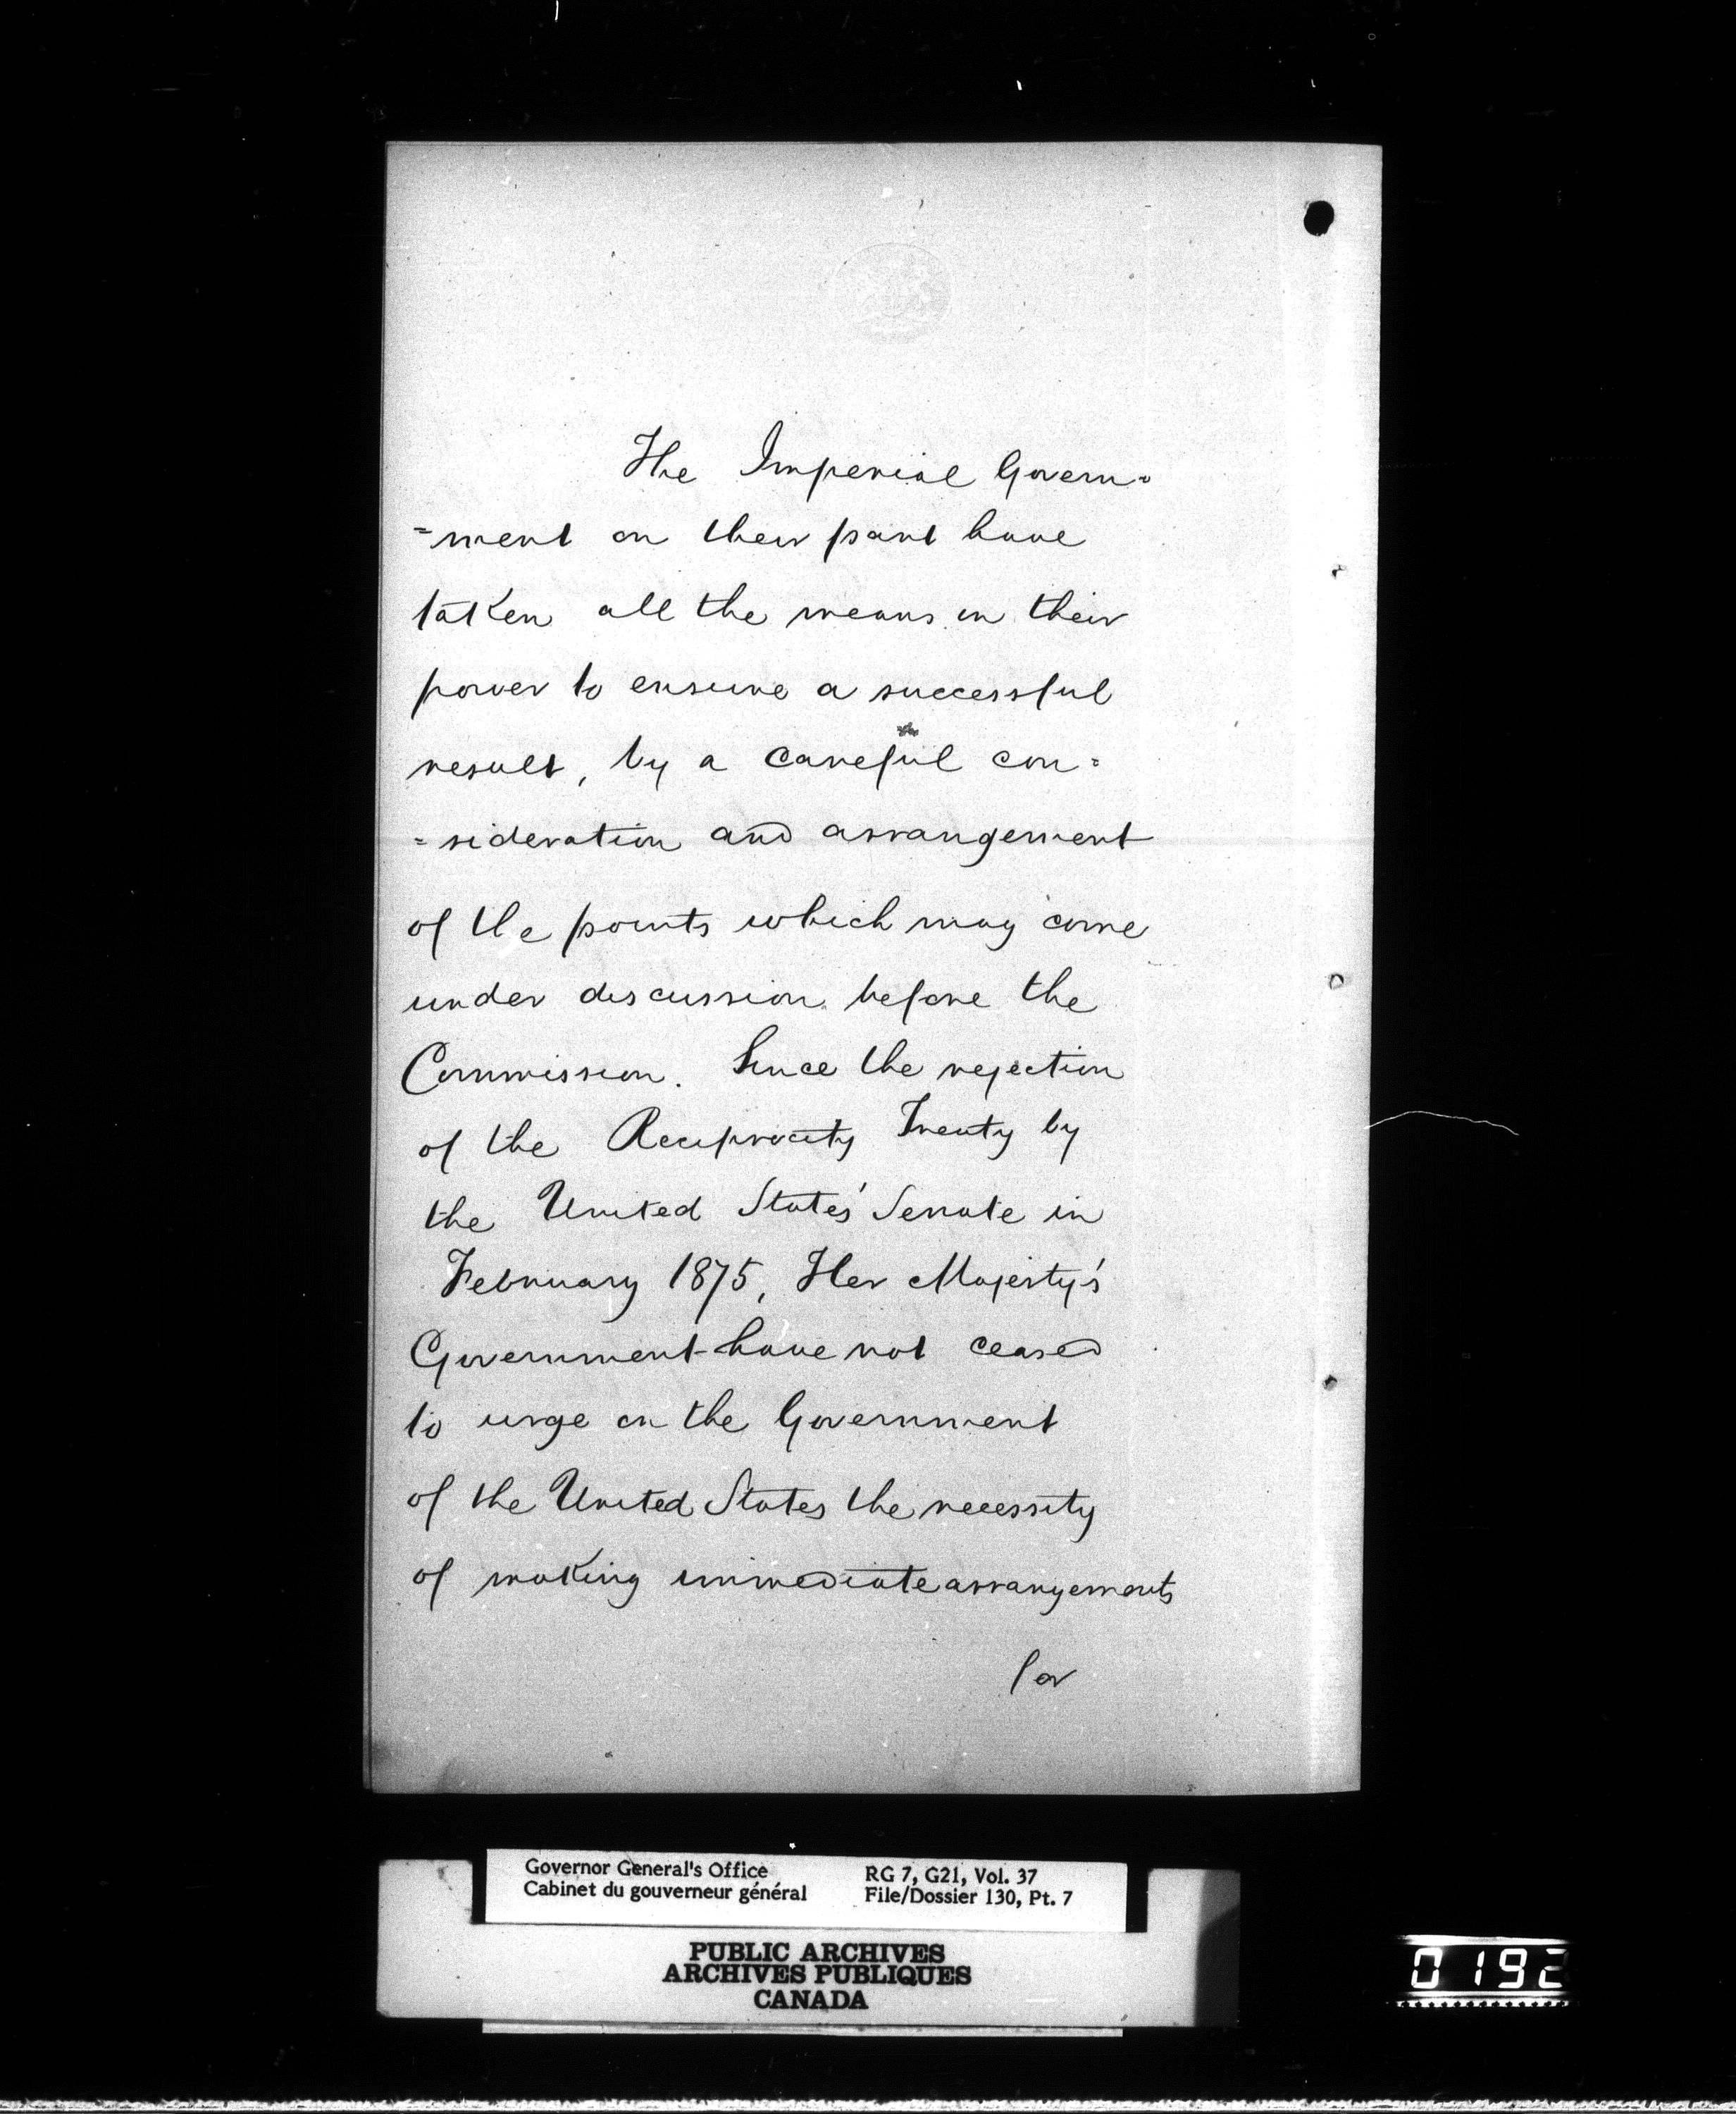 The Imperial Govern=
=ment on their part have
taken all the means in their
power to ensure a successful
result, by a careful con=
=sideration and arrangement
of the points which may come
under discussion before the
Commission. Since the rejection
of the Reciprocity Treaty by
the United States' Senate in
February 1875, Her Majesty's
Government have not ceased
to urge on the Government
of the United States the necessity
of making immediate arrangements
for
Governor General's Office RG 7, G21, Vol. 37
Cabinet du gouverneur général File/Dossier 130, Pt. 7
PUBLIC ARCHIVES
ARCHIVES PUBLIQUES
CANADA
0192